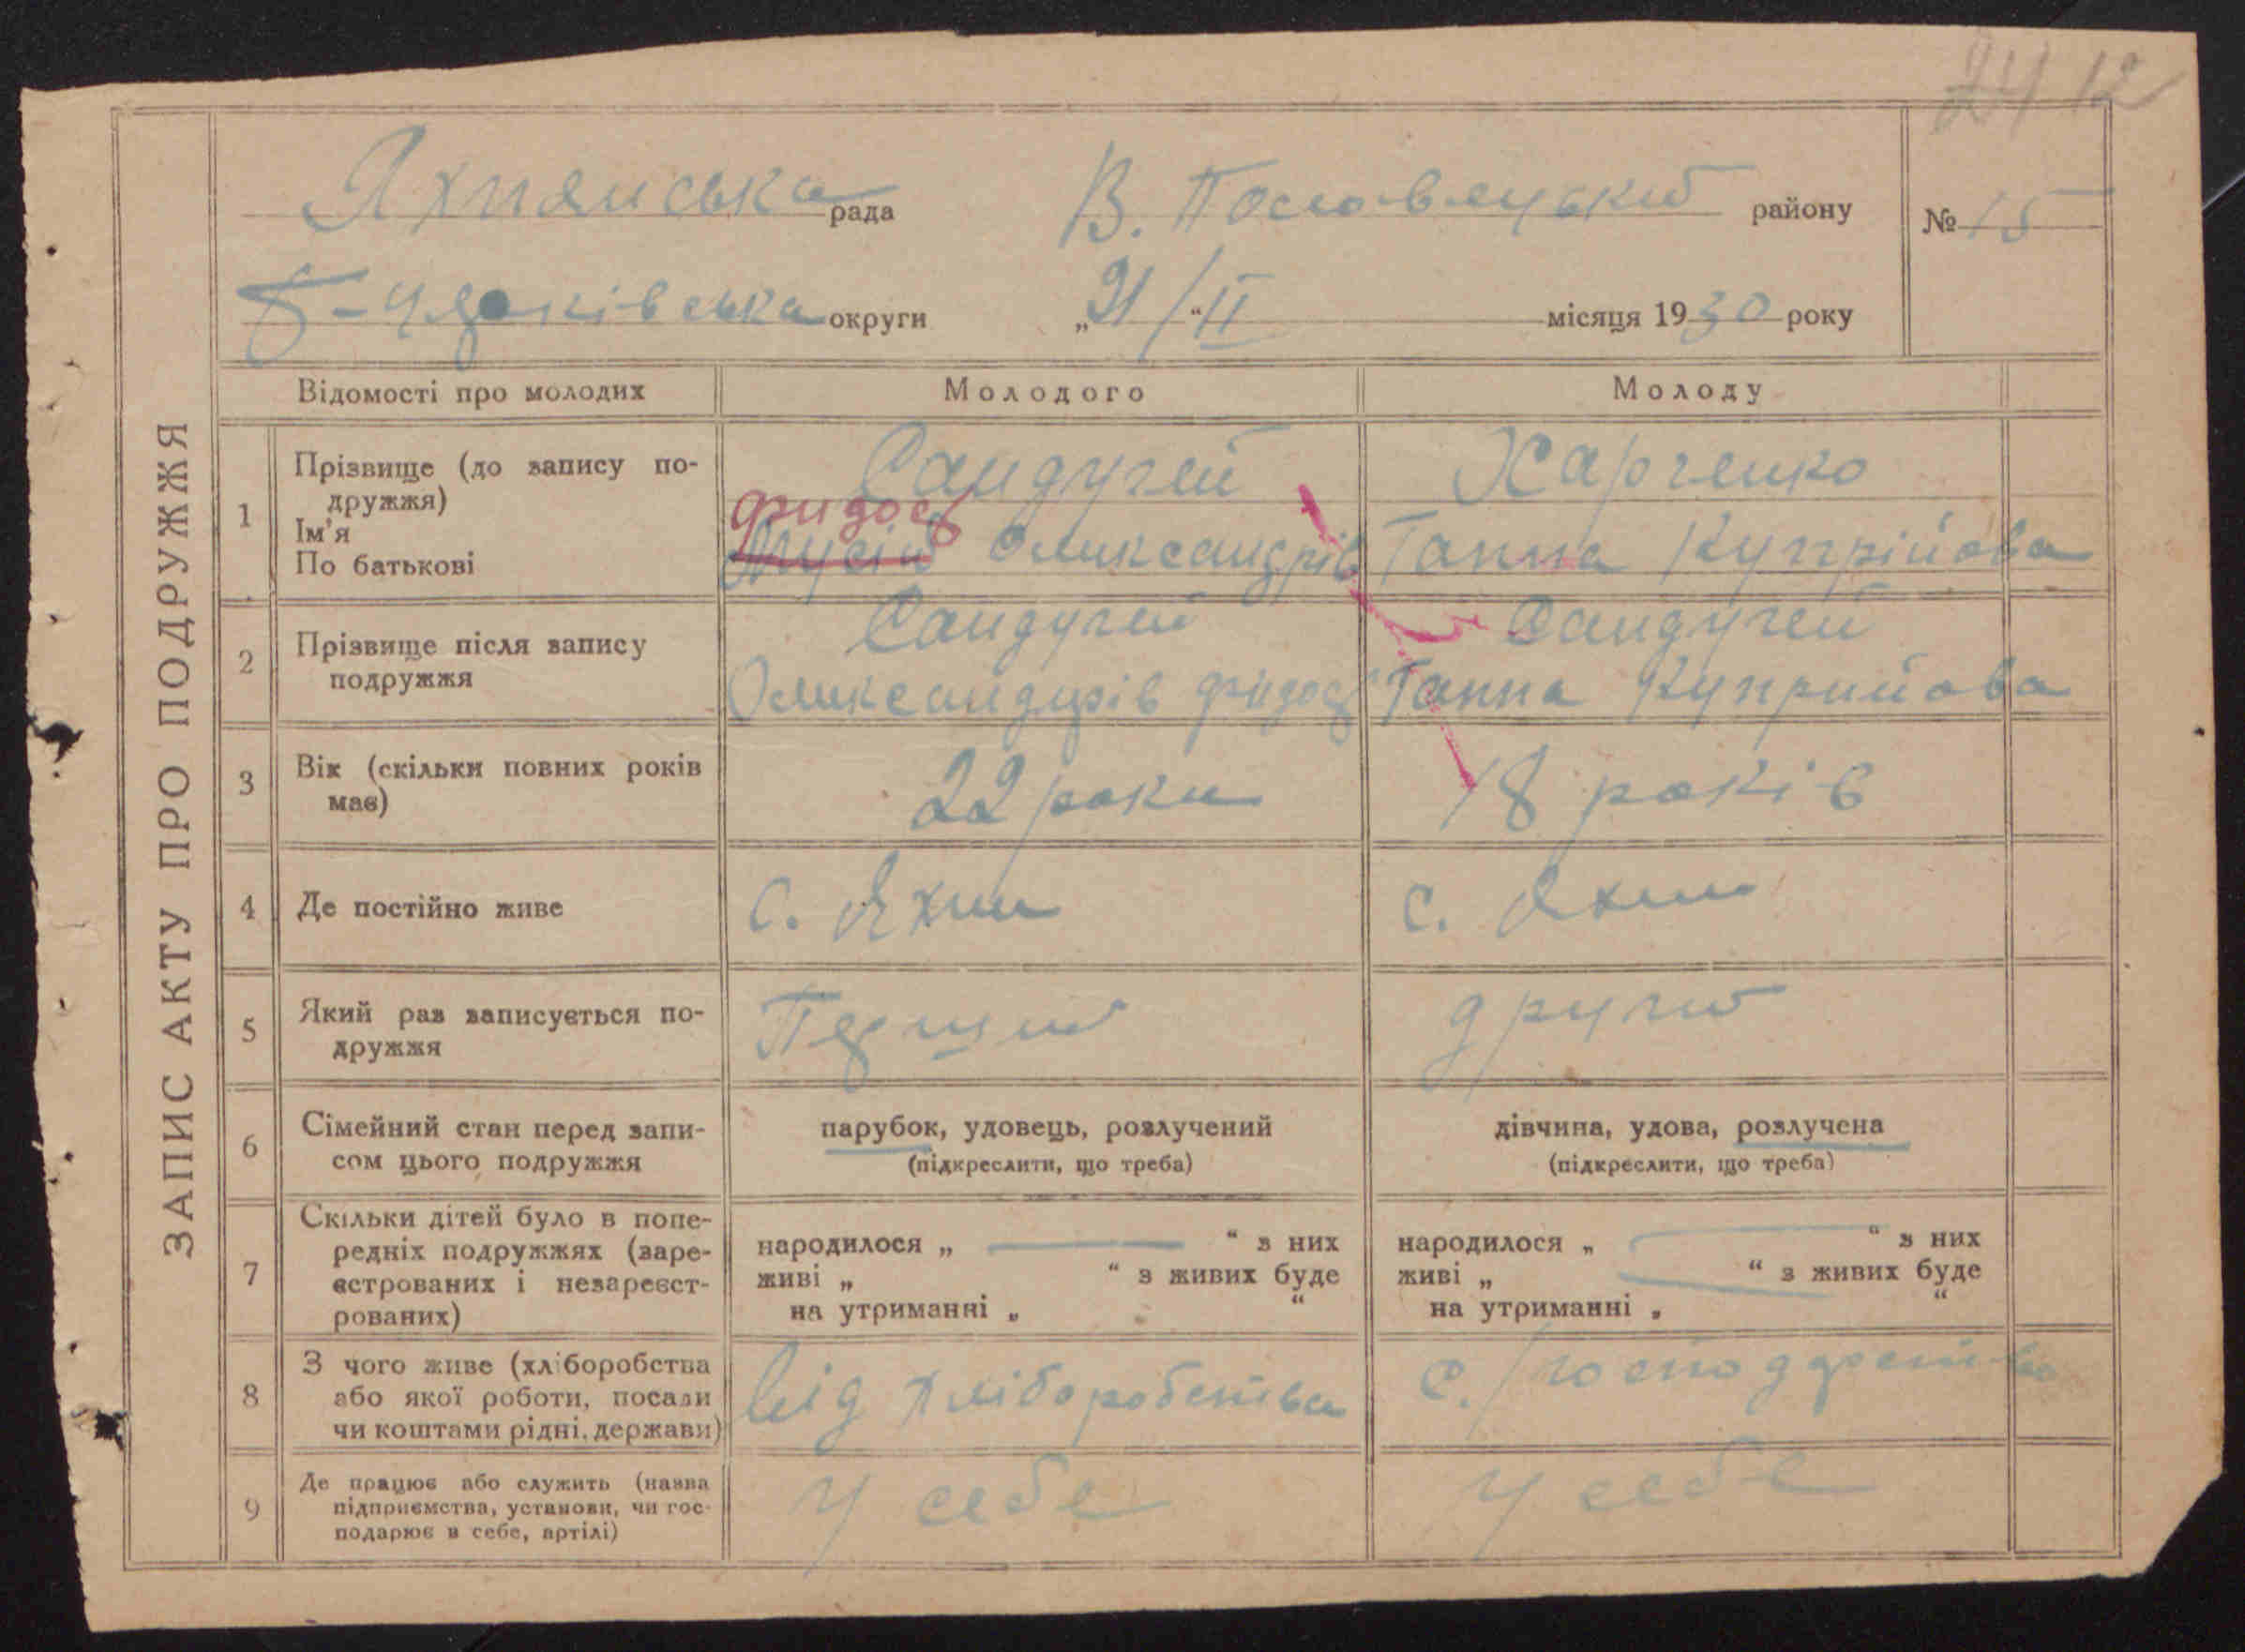 24 12
Яхнянська рада В. Половецький району № 15
Б-Церківська округи „21/“ II місяця 1930 року
ЗАПИС АКТУ ПРО ПОДРУЖЖЯ
Відомості про молодих Молодого Молоду
1 Прізвище (до запису по-
дружжя)
Ім'я
По батькові
Сандугей
Фидось
Мусій Олександрів
Харченко
Ганна Купрійова
2 Прізвище після запису
подружжя
Сандугей
Олександрів Фидось
Сандугей
Ганна Куприйова
3 Вік (скільки повних років
має)
22 роки
18 років
4 Де постійно живе
с. Яхни
с. Яхни
5 Який раз записується по-
дружжя
Перший
другий
6 Сімейний стан перед запи-
сом цього подружжя
парубок, удовець, розлучений
(підкреслити, що треба)
дівчина, удова, розлучена
(підкреслити, що треба)
7 Скільки дітей було в попе-
редніх подружжях (заре-
єстрованих і незареєст-
рованих)
народилося „ — “ з них
живі „ “ з живих буде
на утриманні „ “
народилося „ — “ з них
живі „ — “ з живих буде
на утриманні „ “
8 З чого живе (хліборобства
або якої роботи, посади
чи коштами рідні, держави)
від хліборобства
с./господарства
9 Де працює або служить (назва
підприємства, установи, чи гос-
подарює в себе, артілі)
у себе
у себе